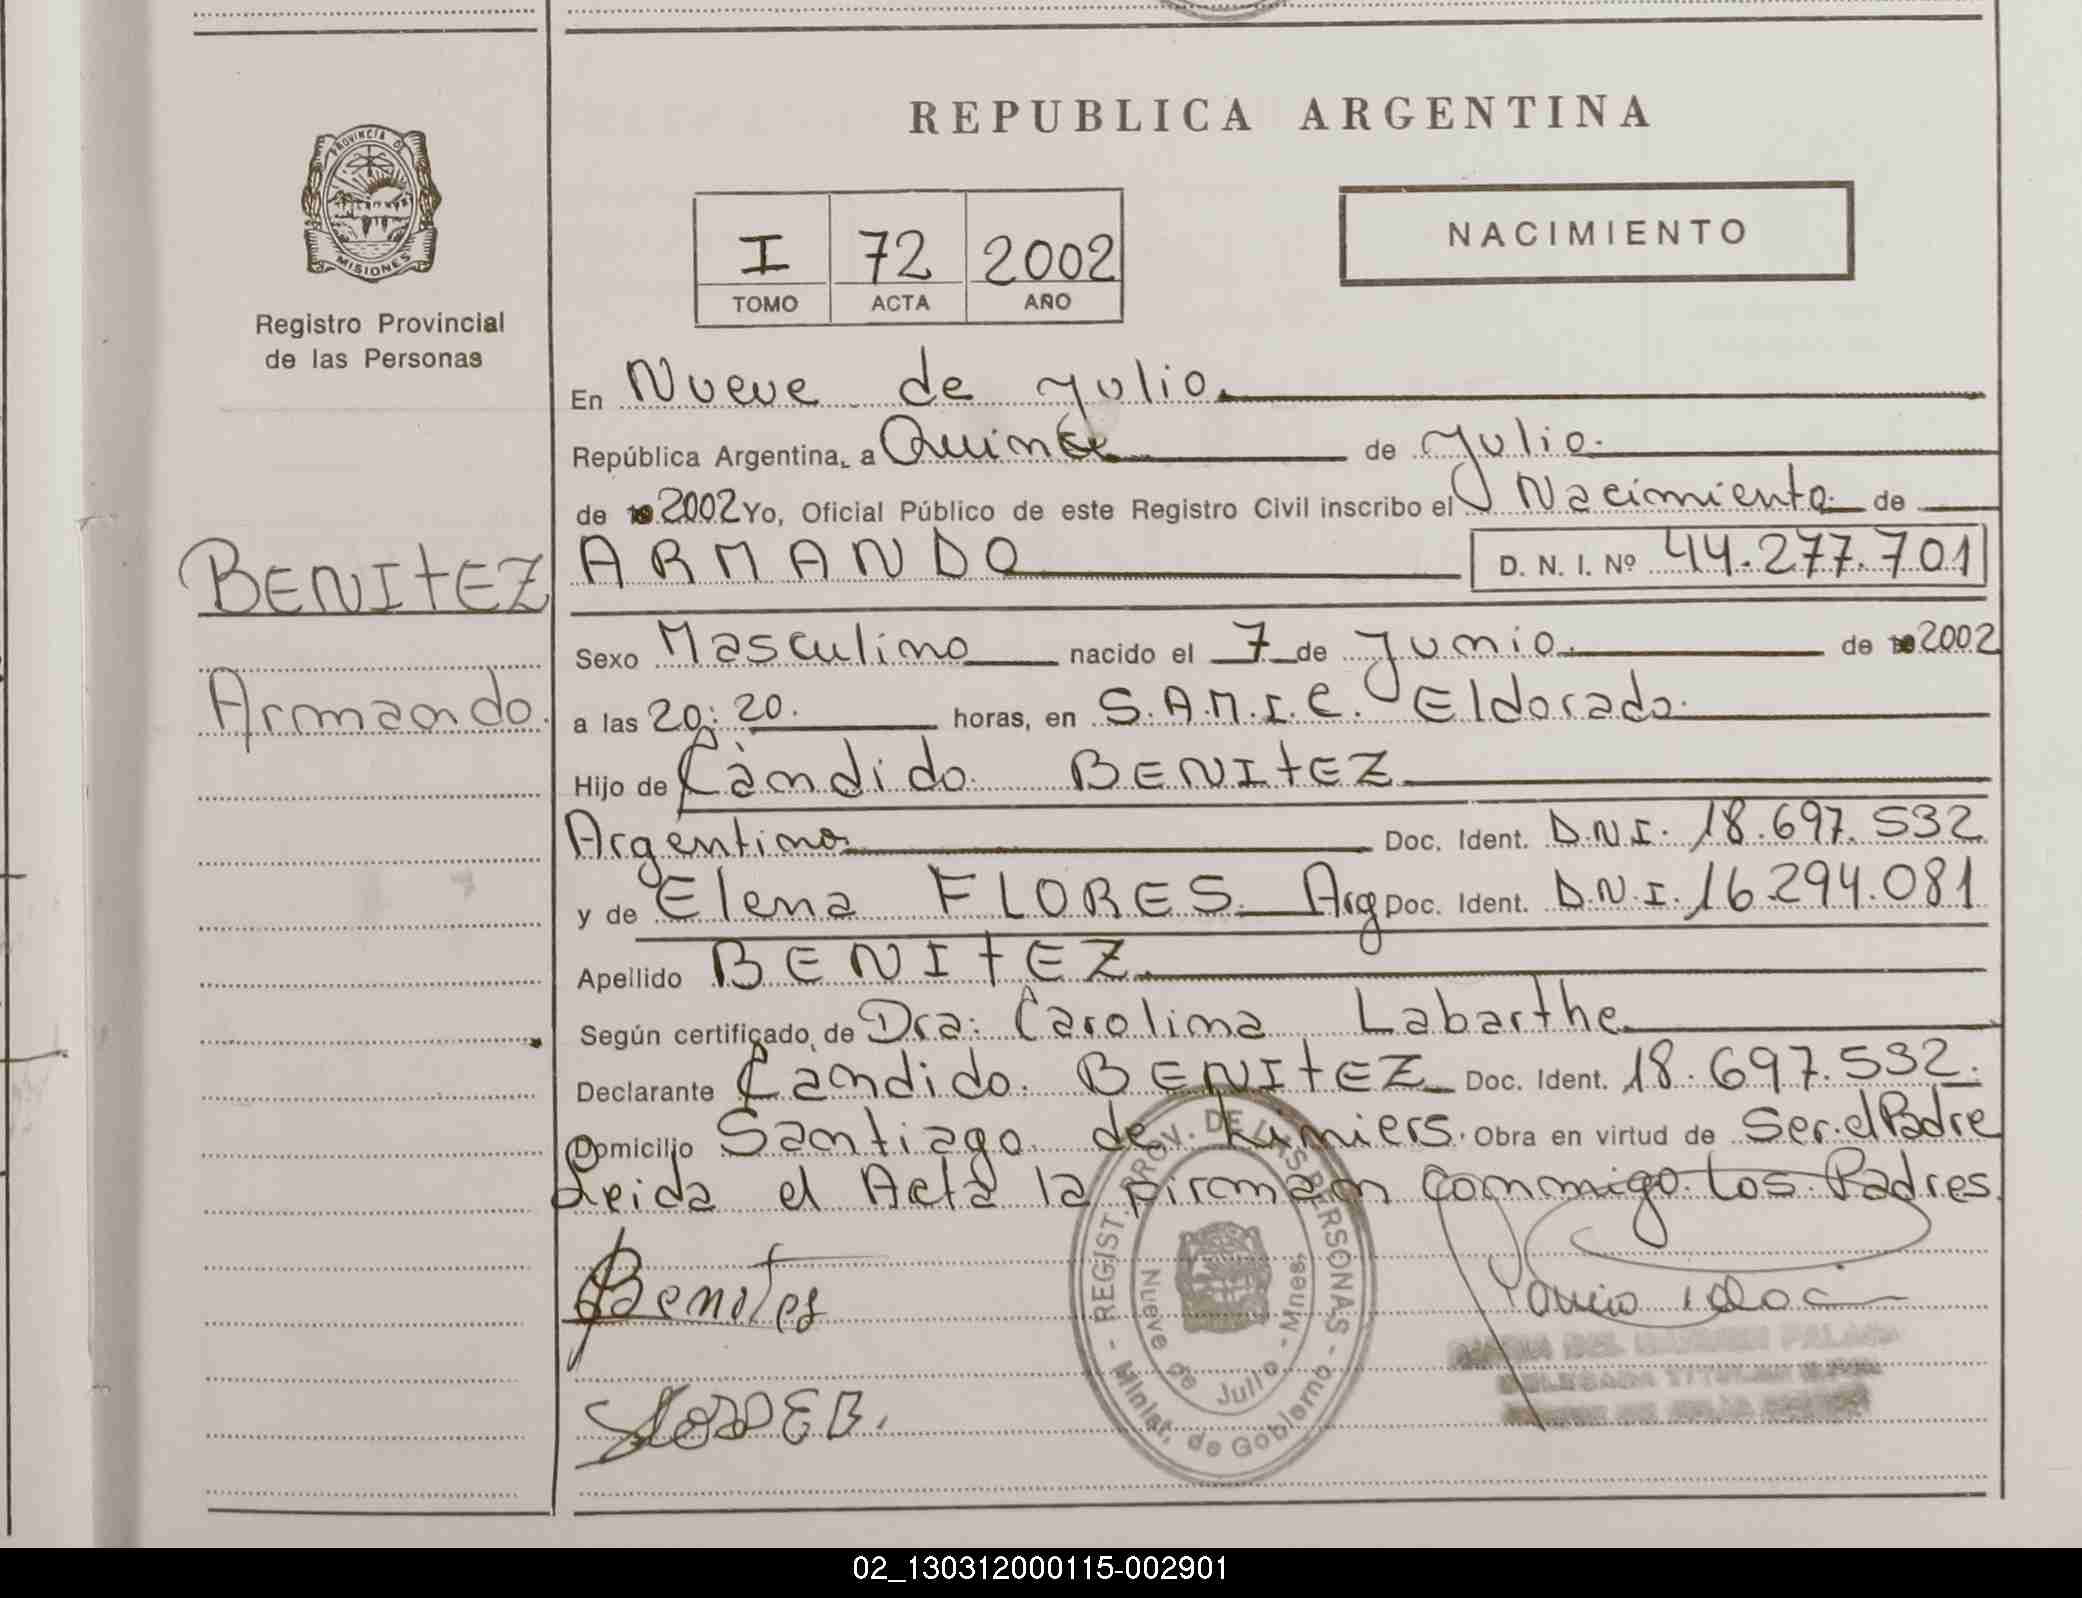 PROVINCIA DE
MISIONES
Registro Provincial
de las Personas
BENITEZ
Armando.
REPUBLICA ARGENTINA
I 72 2002
TOMO ACTA AÑO
NACIMIENTO
En Nueve de Julio.
República Argentina, a Quince de Julio.
de 19 2002 Yo, Oficial Público de este Registro Civil inscribo el Nacimiento de
ARMANDO D. N. I. Nº 44.277.701
Sexo Masculino nacido el 7 de Junio. de 19 2002
a las 20: 20. horas, en S.A.M.I.C. Eldorado.
Hijo de Càndido BENITEZ
Argentino Doc. Ident. D.N.I. 18.697.532
y de Elena FLORES Arg Doc. Ident. D.N.I. 16.294.081
Apellido BENITEZ.
Según certificado, de Dra: Carolina Labarthe
Declarante Candido. BENITEZ Doc. Ident. 18.697.532.
Domicilio Santiago de Limiers. Obra en virtud de Ser el Padre
Leida el Acta la firman conmigo Los Padres.
Benites
- REGIST. PROV. DE LAS PERSONAS -
Minist. de Gobierno
Nueve de Julio - Mnes.
02_130312000115-002901